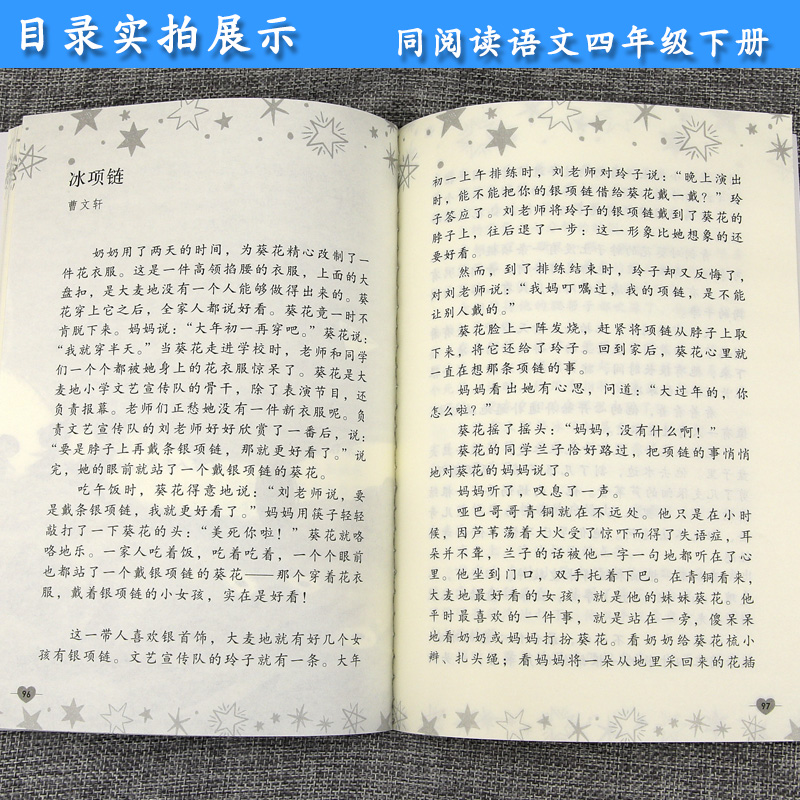 目录实拍展示
同阅读语文四年级下册
冰项链
曹文轩
奶奶用了两天的时间，为葵花精心改制了一
件花衣服。这是一件高领掐腰的衣服，上面的大
盘扣，是大麦地没有一个人能够做得出来的。葵
花穿上它之后，全家人都说好看。葵花竟一时不
肯脱下来。妈妈说：“大年初一再穿吧。”葵花说：
“我就穿半天。”当葵花走进学校时，老师和同学
们一个个都被她身上的花衣服惊呆了。葵花是大
麦地小学文艺宣传队的骨干，除了表演节目，还
负责报幕。老师们正愁她没有一件新衣服呢。负
责文艺宣传队的刘老师好好欣赏了一番后，说：
“要是脖子上再戴条银项链，那就更好看了。”说
完，她的眼前就站了一个戴银项链的葵花。
吃午饭时，葵花得意地说：“刘老师说，要
是戴条银项链，我就更好看了。”妈妈用筷子轻轻
敲打了一下葵花的头：“美死你啦！”葵花就咯
咯地乐。一家人吃着饭，吃着吃着，一个个眼前
也都站了一个戴银项链的葵花——那个穿着花衣
服，戴着银项链的小女孩，实在是好看！
这一带人喜欢银首饰，大麦地就有好几个女
孩有银项链。文艺宣传队的玲子就有一条。大年
96
初一上午排练时，刘老师对玲子说：“晚上演出
时，能不能把你的银项链借给葵花戴一戴？”玲
子答应了。刘老师将玲子的银项链戴到了葵花的
脖子上，往后退了一步：这一形象比她想象的还
要好看。
然而，到了排练结束时，玲子却又反悔了，
对刘老师说：“我妈叮嘱过，我的项链，是不能
让别人戴的。”
葵花脸上一阵发烧，赶紧将项链从脖子上取
下来，将它还给了玲子。回到家后，葵花心里就
一直在想那条项链的事。
妈妈看出她有心思，问道：“大过年的，你
怎么啦？”
葵花摇了摇头：“妈妈，没有什么啊！”
葵花的同学兰子恰好路过，把项链的事悄悄
地对葵花的妈妈说了。
妈妈听了，叹息了一声。
哑巴哥哥青铜就在不远处。他只是在小时
候，因芦苇荡着大火受了惊吓而得了失语症，耳
朵并不聋，兰子的话被他一字一句地都听在了心
里。他坐到门口，双手托着下巴。在青铜看来，
大麦地最好看的女孩，就是他的妹妹葵花。他
平时最喜欢的一件事，就是站在一旁，傻呆呆
地看奶奶或妈妈打扮葵花。看奶奶给葵花梳小
辫、扎头绳；看妈妈将一朵从地里采回来的花插
97